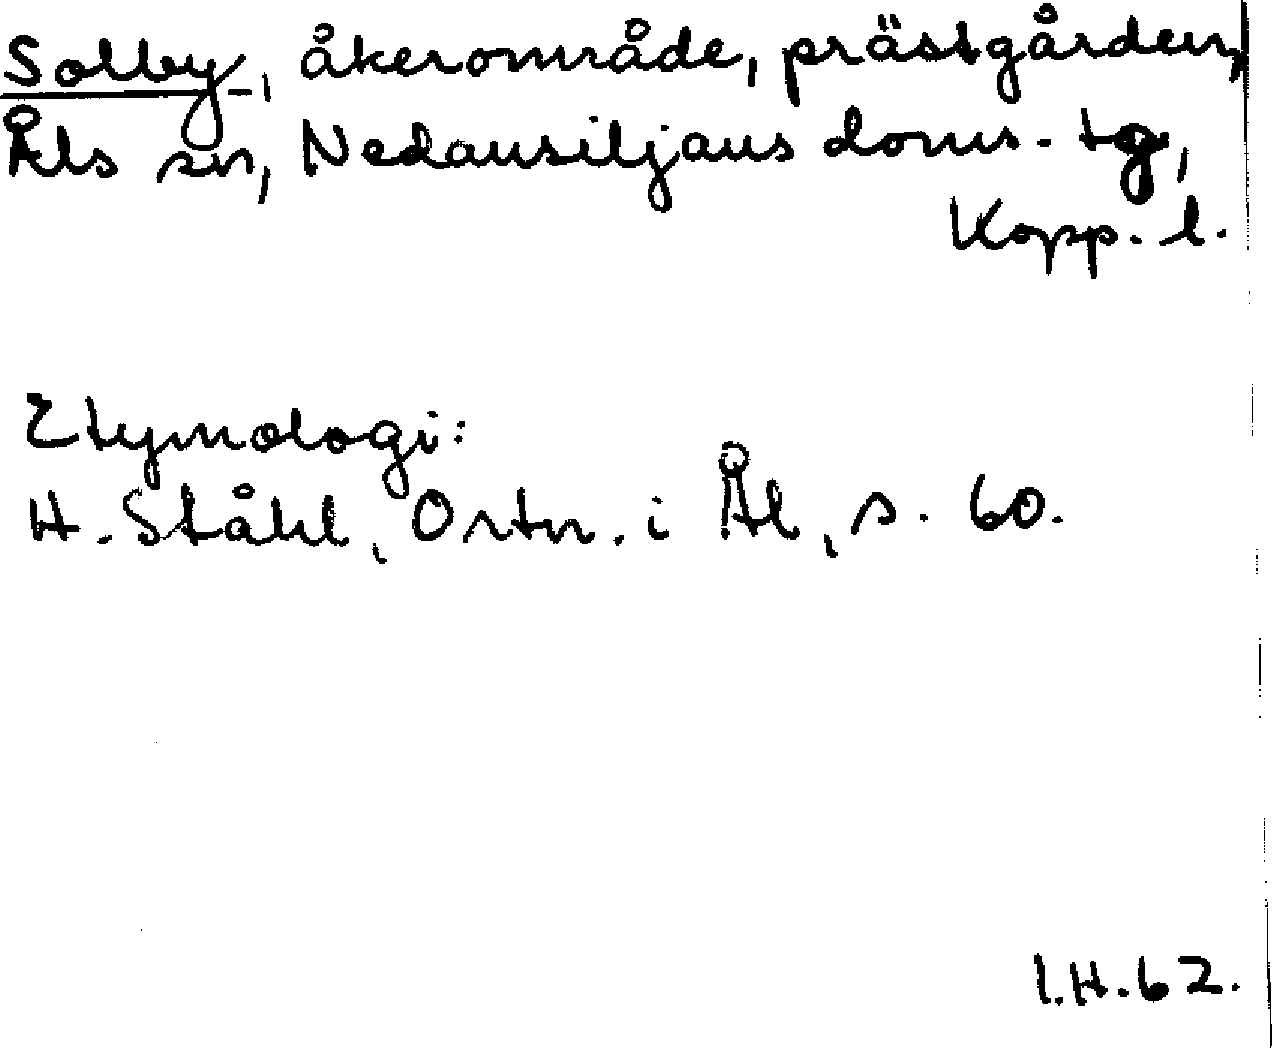 Solby, åkerområde, prästgården,
Åls sn, Nedansiljans doms. tg,
Kopp. l.
Etymologi:
H. Ståhl, Ortn. i Ål, s. 60.
I.H. 62.